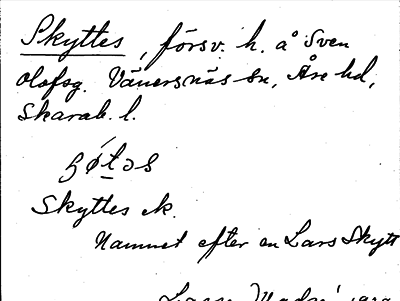 Skyttes, försv. h. å Sven
Olofsg. Vänersnäs sn, Åre hd,
Skarab. l.
ʃǿtəs
Skyttes ek.
Namnet efter en Lars Skytt